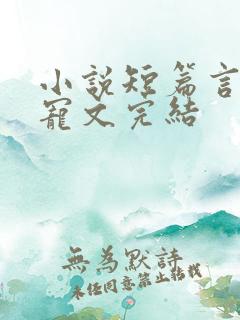 小說短篇言
寵文完結
無為默詩
未經同意禁止轉載